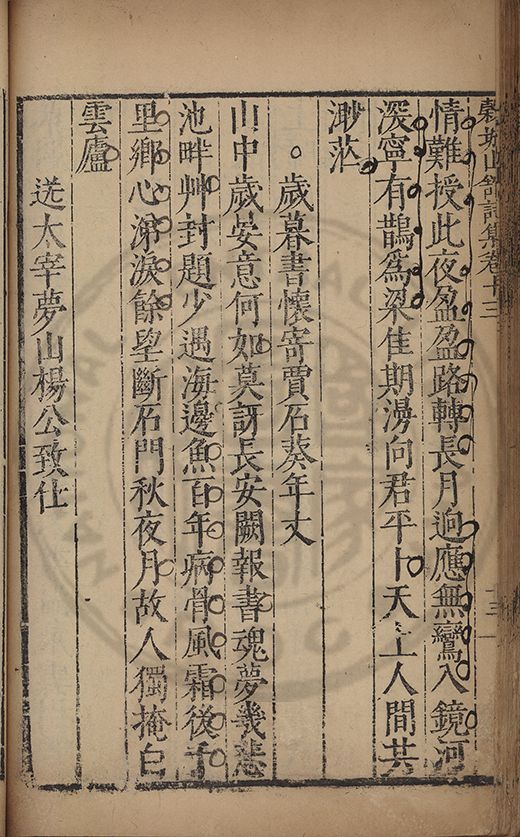 穀城山館詩集卷十三
情難授此夜盈盈路轉長月逈應無鸞入鏡河
深寧有鵲為梁佳期漫向君平卜天上人間共
渺茫
歲暮書懷寄賈石葵年丈
山中歲晏意何如莫訝長安闕報書魂夢幾悲
池畔艸封題少遇海邊魚百年病骨風霜後千
里鄉心涕淚餘望斷石門秋夜月故人獨掩白
雲廬
送太宰夢山楊公致仕